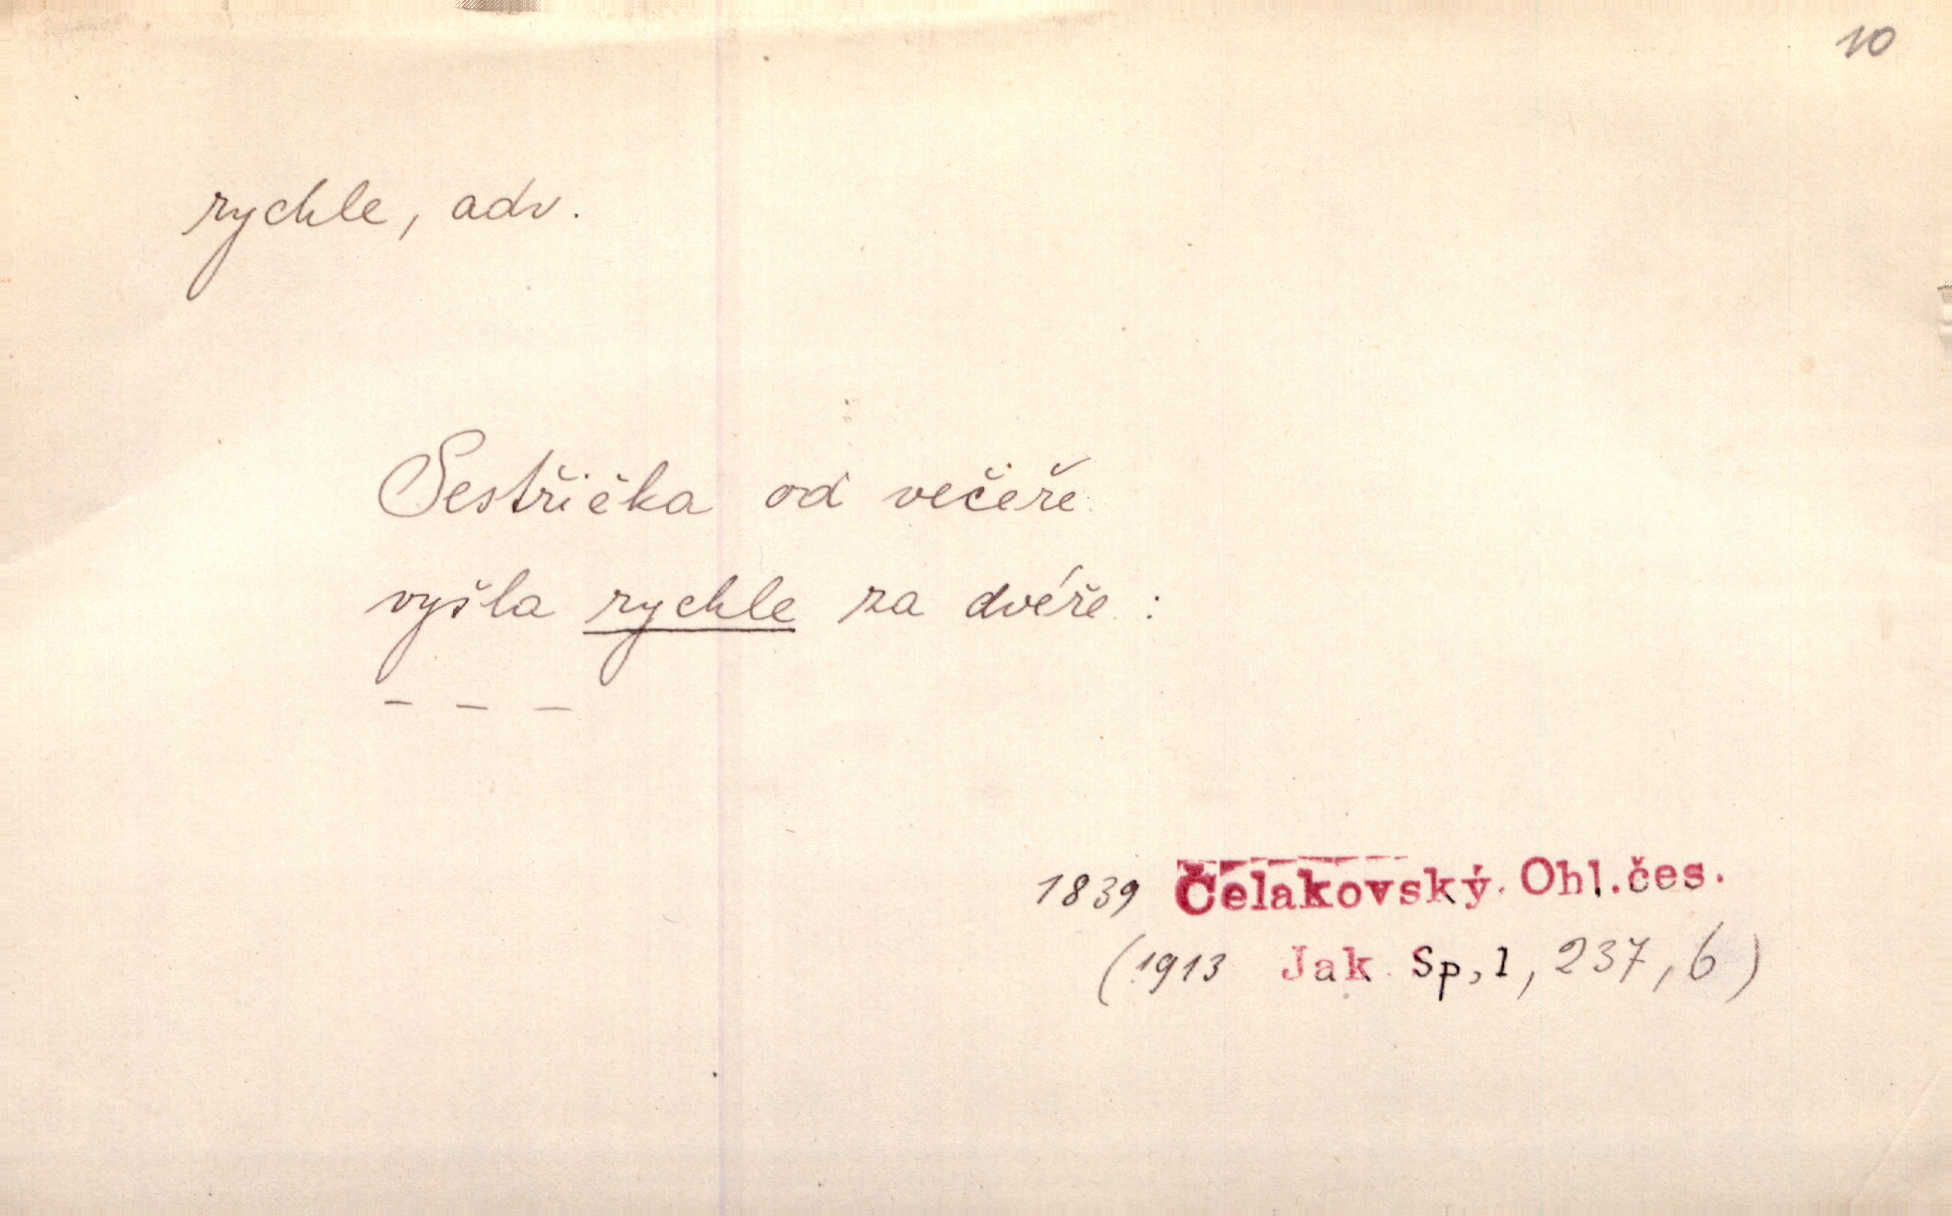 10
rychle, adv.
Sestřička od večeře
vyšla rychle za dvéře :
– – –
1839 Čelakovský. Ohl.čes.
(1913 Jak Sp,1, 237, 6)